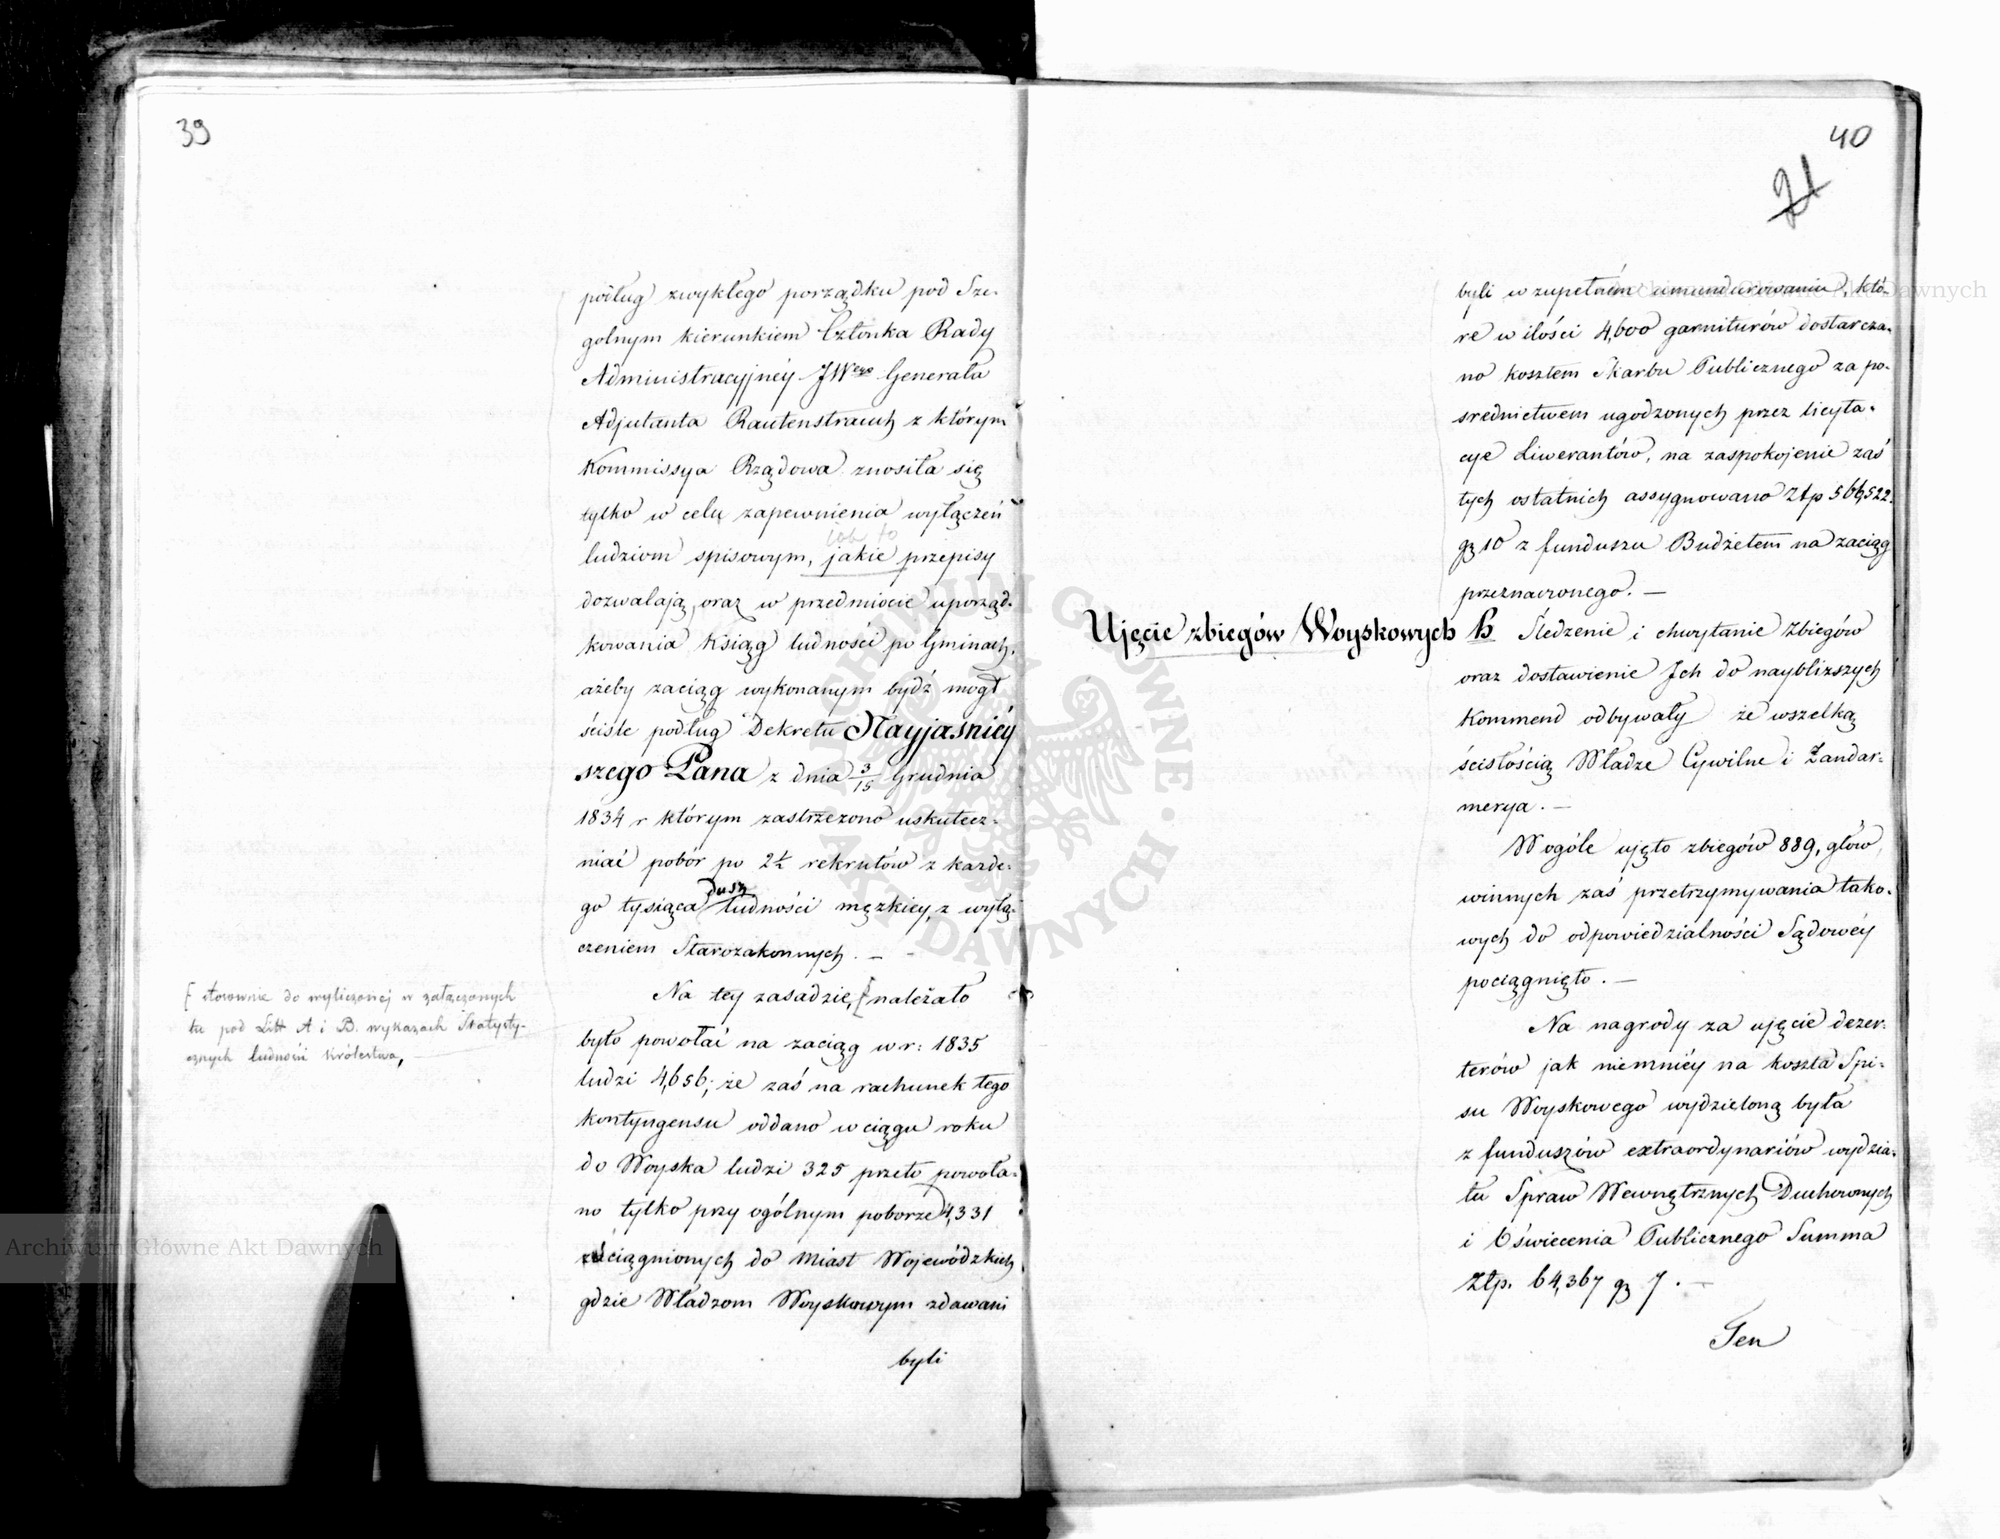 39
podług zwykłego porządku pod Szc-
gólnym kierunkiem Członka Rady
Administracyjnéy JWego Generała
Adjutanta Rautenstrauch z którym
Kommissya Rządowa znosiła się
tylko w celu zapewnienia wyłączeń
ludziom spisowym, jakie przepisy
dozwalają, oraz w przedmiocie uporząd-
kowania Ksiąg ludności po Gminach,
ażeby zaciąg wykonanym bydź mogł
ściśle podług Dekretu Nayjaśniéy
szego Pana z dnia 3/15 Grudnia
1834 r którym zastrzeżono uskutecz-
niać pobór po 2½ rekrutów z każde-
go tysiąca dusz ludności męzkiey, z wyłą-
czeniem Starozakonnych. —
Na tey zasadzie, [ należało
[ stosownie do wyliczonéj w załączonych
tu pod Litt A i B. wykazach Statysty-
cznych ludności Królestwa, —
było powołać na zaciąg w r: 1835
ludzi 4,656; że zaś na rachunek tego
kontyngensu oddano w ciągu roku
do Woyska ludzi 325 przeto powoła-
no tylko przy ogólnym poborze 4,331
ściągnionych do Miast Wojewódzkich
gdzie Władzom Woyskowym zdawani
byli
40
21
byli w zupełném umundurowaniu, któ-
re w ilości 4,600 garniturów dostarcza-
no kosztem Skarbu Publicznego za po-
srednictwem ugodzonych przez licyta-
cye Liwerantów, na zaspokojenie zaś
tych ostatnich assygnowano Złp 566,522.
gr 10 z funduszu Budżetem na zaciąg
przeznaczonego. —
Ujęcie zbiegów Woyskowych
h Śledzenie i chwytanie Zbiegów
oraz dostawienie Ich do naybliższych
Kommend odbywały ze wszelką
ścisłością Władze Cywilne i Żandar-
merya. —
W ogóle ujęto zbiegów 889, głów,
winnych zaś przetrzymywania tako-
wych do odpowiedzialności Sądowéy
pociągnięto. —
Na nagrody za ujęcie dezer-
terów jak niemniéy na koszta Spi-
su Woyskowego wydzieloną była
z funduszów extraordynariów wydzia-
łu Spraw Wewnętrznych Duchownych
i Oświecenia Publicznego Summa
Złp. 64,367 gr 7. —
Ten
Archiwum Główne Akt Dawnych
Archiwum Główne Akt Dawnych
ARCHIWUM GŁÓWNE AKT DAWNYCH